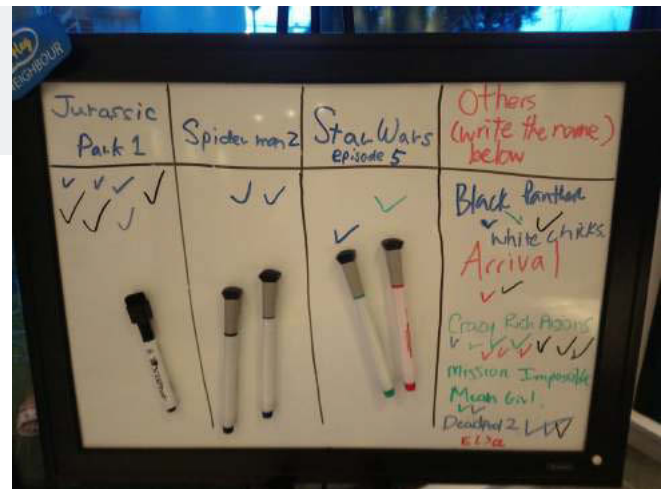 Hey
NEIGHBOUR
Jurassic
Park 1
Spider man 2
Star Wars
episode 5
Others
(write the name)
below
Black Panther
white chicks
Arrival
Crazy Rich Asians
Mission Impossible
Mean Girl
Deadpool 2